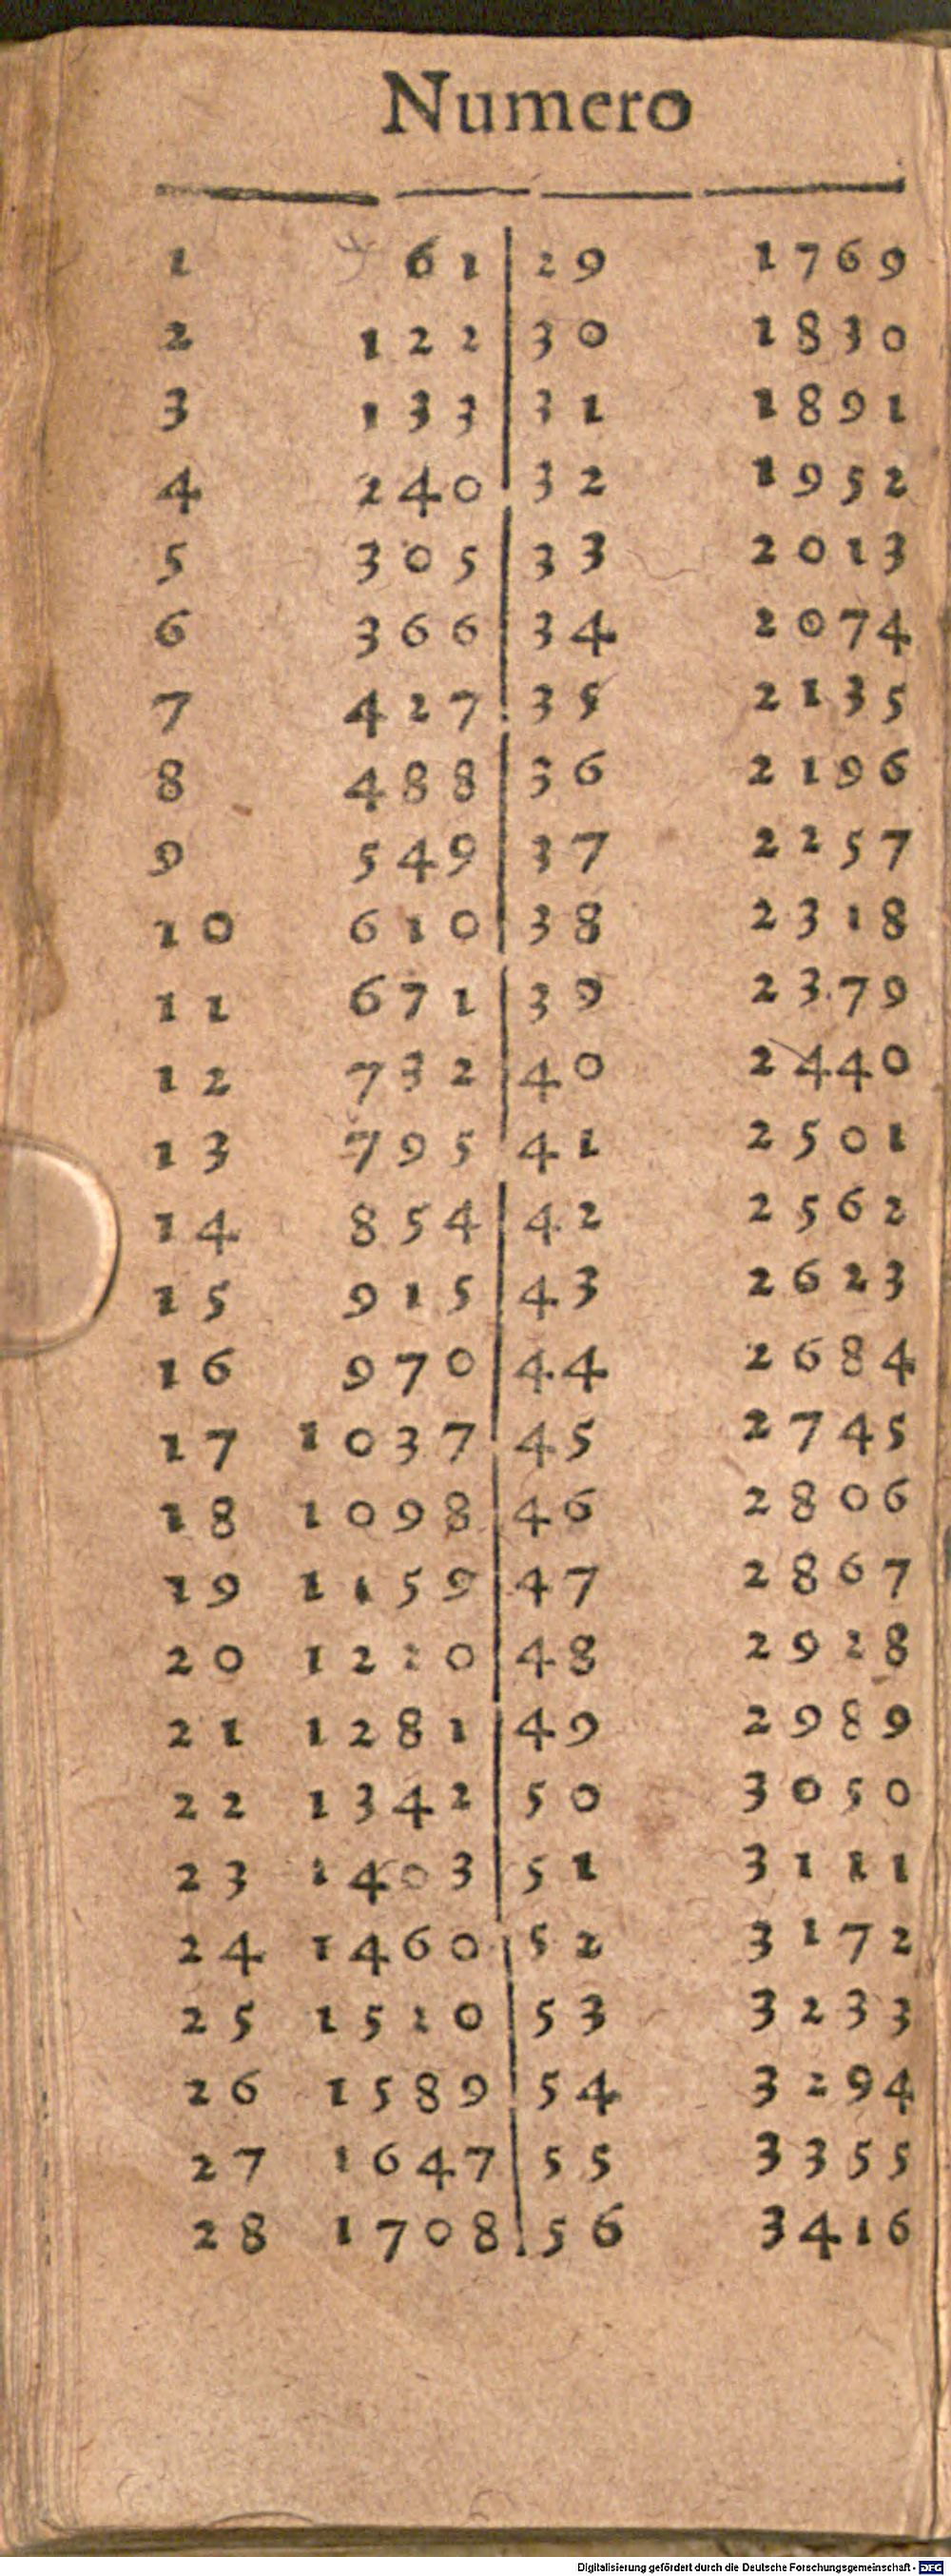 Numero
1 61 29 1769
2 122 30 1830
3 133 31 1891
4 240 32 1952
5 305 33 2013
6 366 34 2074
7 427 35 2135
8 488 36 2196
9 549 37 2257
10 610 38 2318
11 671 39 2379
12 732 40 2440
13 795 41 2501
14 854 42 2562
15 915 43 2623
16 970 44 2684
17 1037 45 2745
18 1098 46 2806
19 1159 47 2867
20 1220 48 2928
21 1281 49 2989
22 1342 50 3050
23 1403 51 3111
24 1460 52 3172
25 1520 53 3233
26 1589 54 3294
27 1647 55 3355
28 1708 56 3416
Digitalisierung gefördert durch die Deutsche Forschungsgemeinschaft - DFG